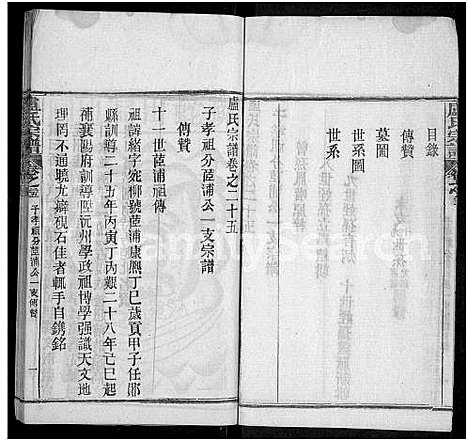 盧氏宗譜
目錄
傳贊
墓圖
世系圖
世系
盧氏宗譜卷之二十五
子孝祖分茝浦公一支宗譜
傳贊
十一世茝浦祖傳
祖諱緒字宛柳號茝浦康熙丁巳歲貢甲子任鄖
縣訓導二十五年丙寅丁內艱二十八年己巳起
補襄陽府訓導陞沅州學政祖博學强識天文地
理罔不通曉尤癖硯石佳者輒手自鐫銘
盧氏宗譜
子孝祖分茝浦公一支傳贊
一